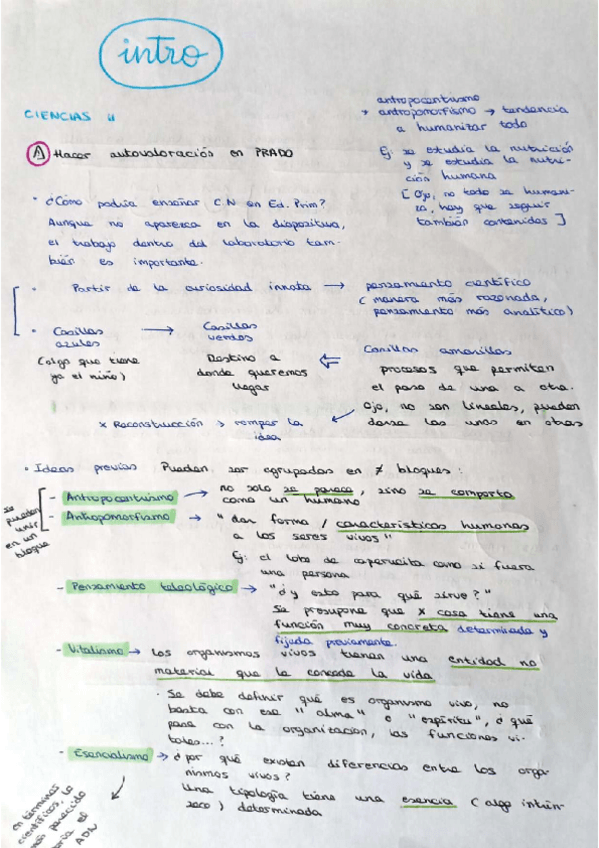 intro
CIENCIAS
antropocentrismo
* antropomorfismo → tendencia
a humanizar todo
Ej: se estudia la nutrición
y se estudia la nutri-
ción humana
[ Ojo, no todo se humani-
za, hay que seguir
también contenidos ]
A) Hacer autovaloración en PRADO
• ¿Cómo podría enseñar C.N en Ed. Prim?
Aunque no aparezca en la diapositiva,
el trabajo dentro del laboratorio tam-
bién es importante.
• Partir de la curiosidad innata → pensamiento científico
( manera más razonada,
pensamiento más analítico)
• Casillas → Casillas
azules verdes
(algo que tiene Destino a
ya el niño) donde queremos
llegar
⇐ Casillas amarillas
procesos que permiten
el paso de una a otra.
Ojo, no son lineales, pueden
darse las unas en otras
× Reconstrucción → romper la
idea
• Ideas previas Pueden ser agrupadas en ≠ bloques :
se pueden unir en un bloque
- Antropocentrismo → no solo se parece, sino se comporta
como un humano
- Antropomorfismo → "dar forma / características humanas
a los seres vivos"
Ej: el lobo de caperucita como si fuera
una persona
- Pensamiento teleológico → "¿y esto para qué sirve?"
Se presupone que × cosa tiene una
función muy concreta determinada y
fijada previamente.
- Vitalismo → los organismos vivos tienen una entidad no
material que le conceda la vida
· Se debe definir qué es organismo vivo, no
basta con ese "alma" o "espíritu", ¿qué
pasa con la organización, las funciones vi-
tales...?
- Esencialismo → ¿por qué existen diferencias entre los orga-
nismos vivos?
Una tipología tiene una esencia (algo intrín-
seco) determinada
en términos
científicos, lo
más parecido
sería el
ADN